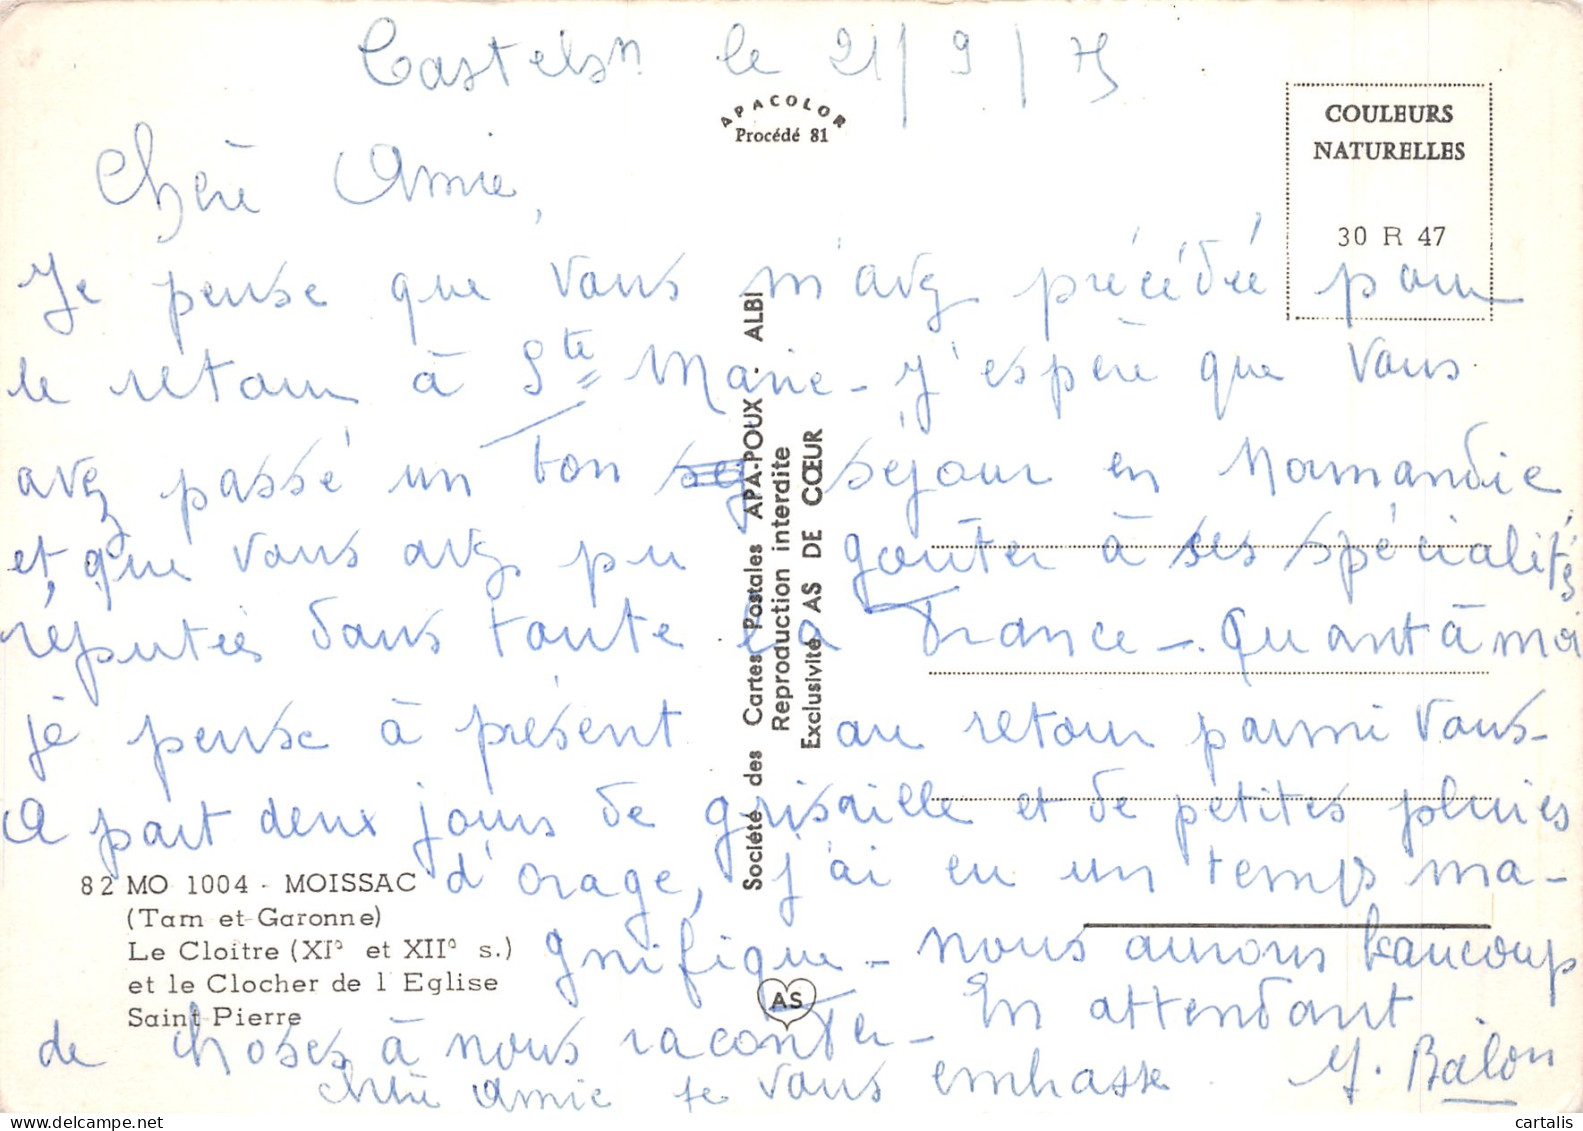 Castelsn le 21/9/75
APACOLOR
Procédé 81
COULEURS
NATURELLES
30 R 47
Chère Amie,
Je pense que vous m'avez précédée pour
le retour à Ste Marie - J'espère que vous
avez passé un bon séjour en Normandie
et que vous avez pu goûter à ses spécialités
réputées dans toute la France -. Quant à moi
je pense à présent au retour parmi vous -
A part deux jours de grisaille et de petites pluies
d'orage, j'ai eu un temps ma-
gnifique - nous aurons beaucoup
de choses à nous raconter - En attendant
Chère Amie je vous embrasse M. Balon
82 MO 1004 - MOISSAC
(Tarn et Garonne)
Le Cloître (XI° et XII° s.)
et le Clocher de l Eglise
Saint Pierre
Société des Cartes Postales APA-POUX - ALBI
Reproduction interdite
Exclusivité AS DE CŒUR
AS
cartalis